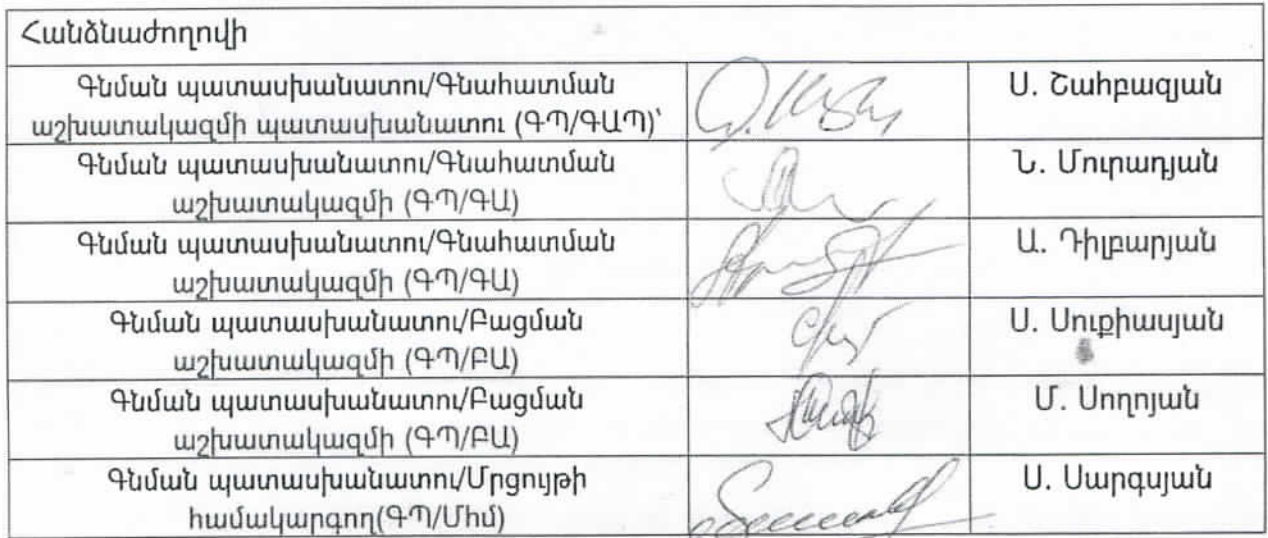 Հանձնաժողովի
Գնման պատասխանատու/Գնահատման
աշխատակազմի պատասխանատու (ԳՊ/ԳԱՊ)՝
Ս. Շահբազյան
Գնման պատասխանատու/Գնահատման
աշխատակազմի (ԳՊ/ԳԱ)
Ն. Մուրադյան
Գնման պատասխանատու/Գնահատման
աշխատակազմի (ԳՊ/ԳԱ)
Ա. Դիլբարյան
Գնման պատասխանատու/Բացման
աշխատակազմի (ԳՊ/ԲԱ)
Ս. Սուքիասյան
Գնման պատասխանատու/Բացման
աշխատակազմի (ԳՊ/ԲԱ)
Մ. Սողոյան
Գնման պատասխանատու/Մրցույթի
համակարգող(ԳՊ/Մհմ)
Ս. Սարգսյան